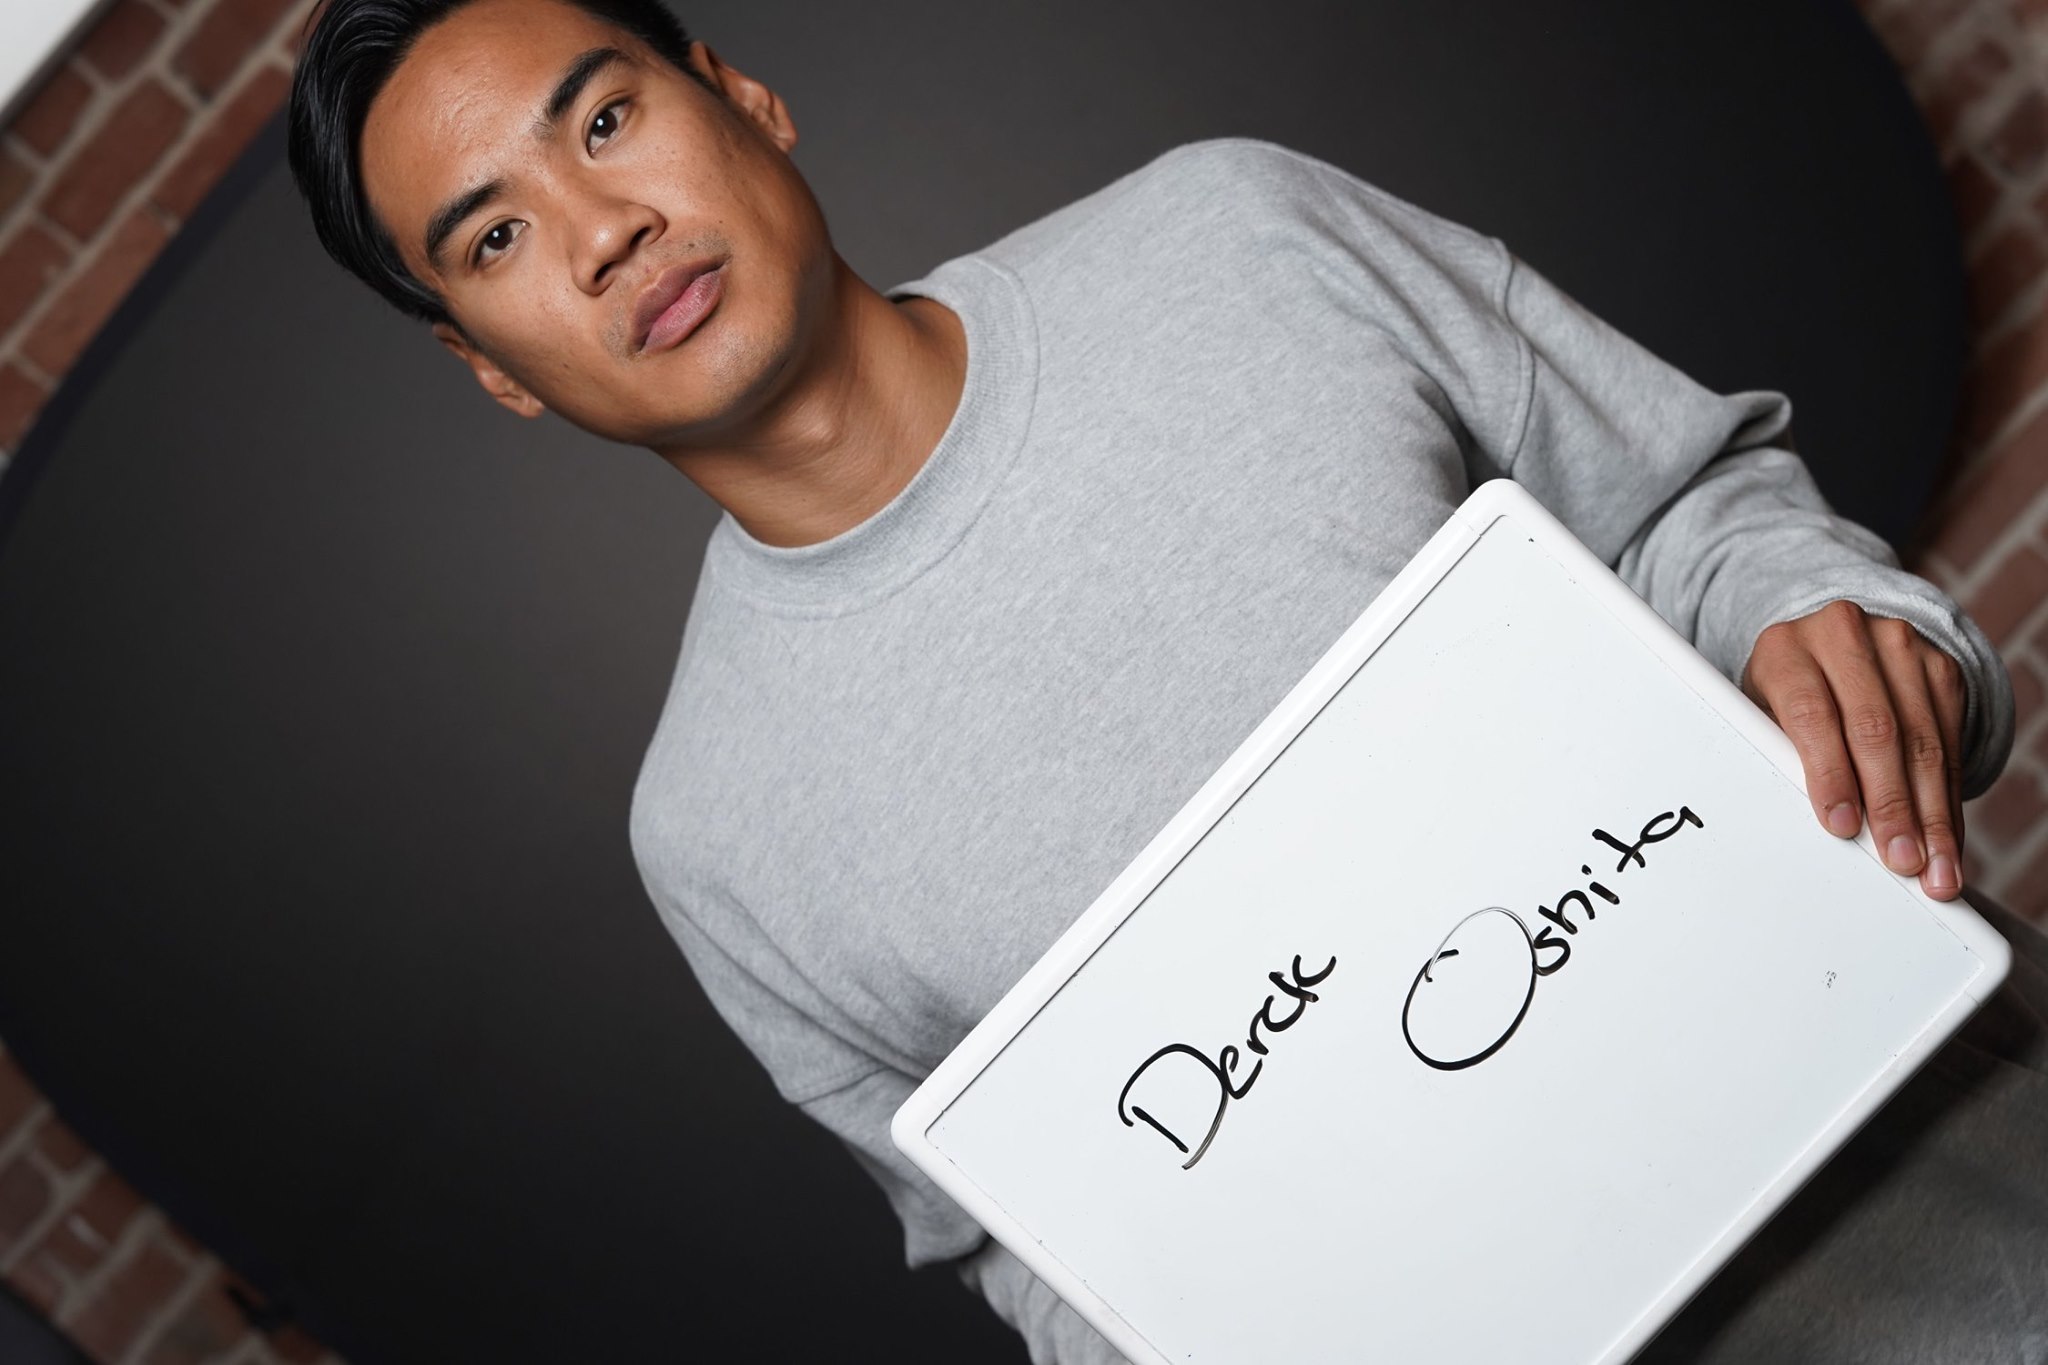 Derek
Oshita